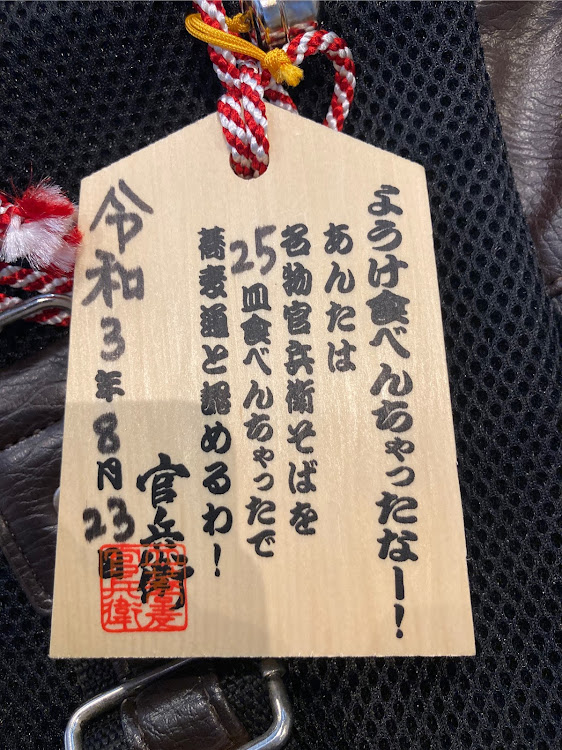 ようけ食べんちゃったなー!
あんたは
名物官兵衛そばを
25皿食べんちゃったで
蕎麦通と認めるわ!
令和3年8月23日
官兵衛